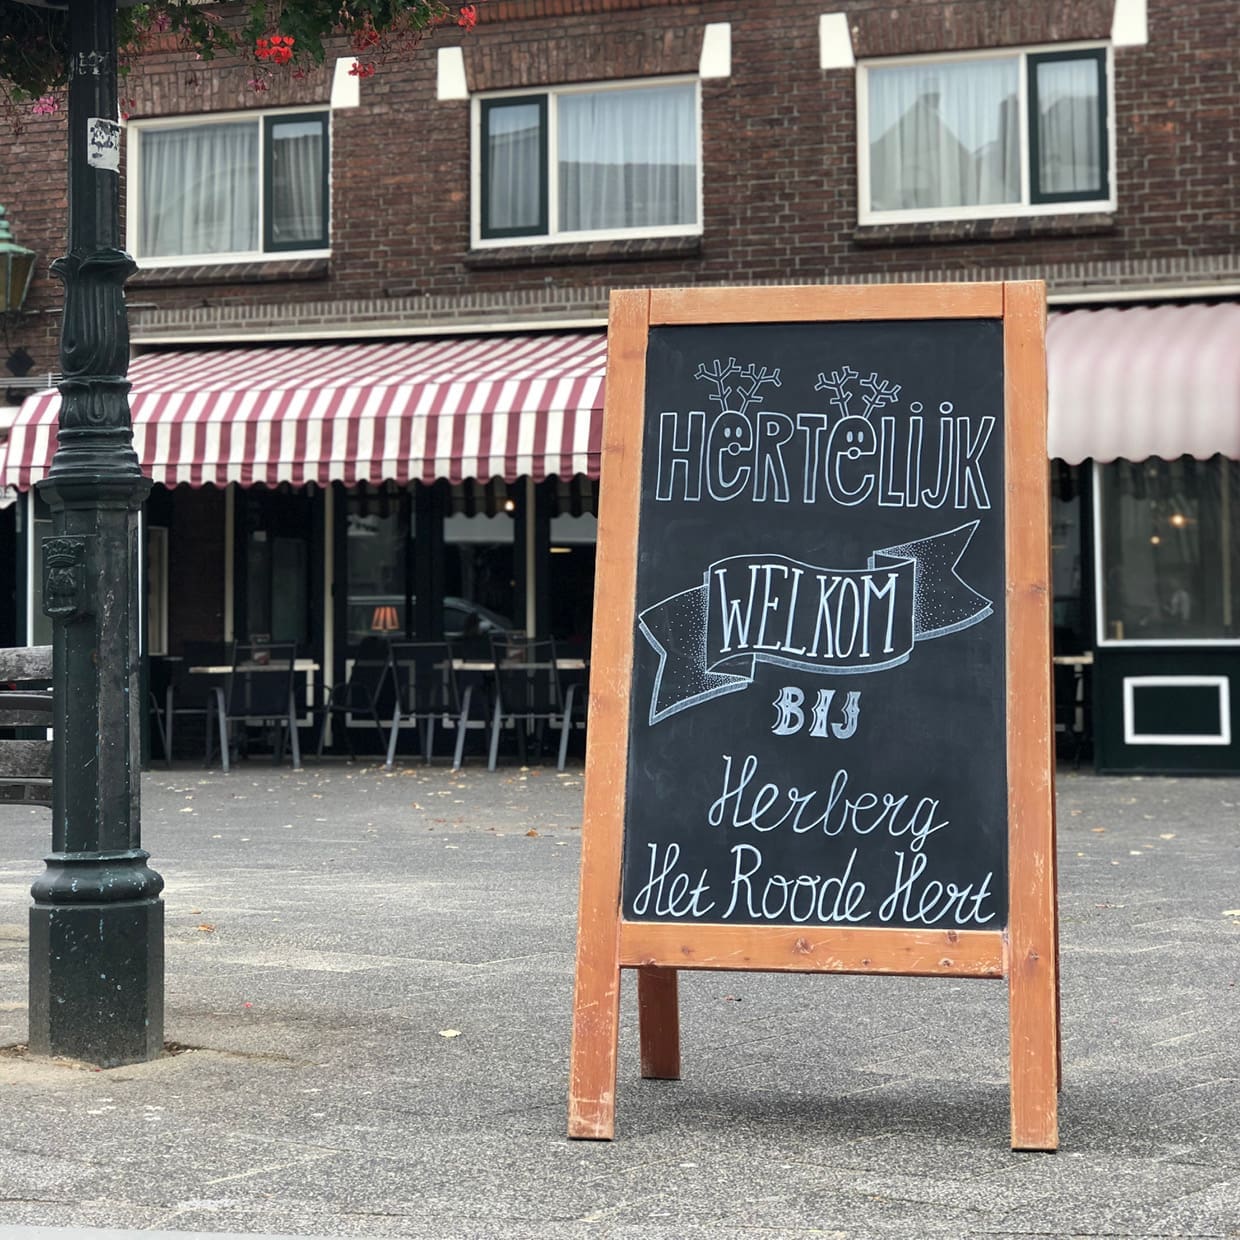 HeRTeLijK
WELKOM
BIJ
Herberg
Het Roode Hert